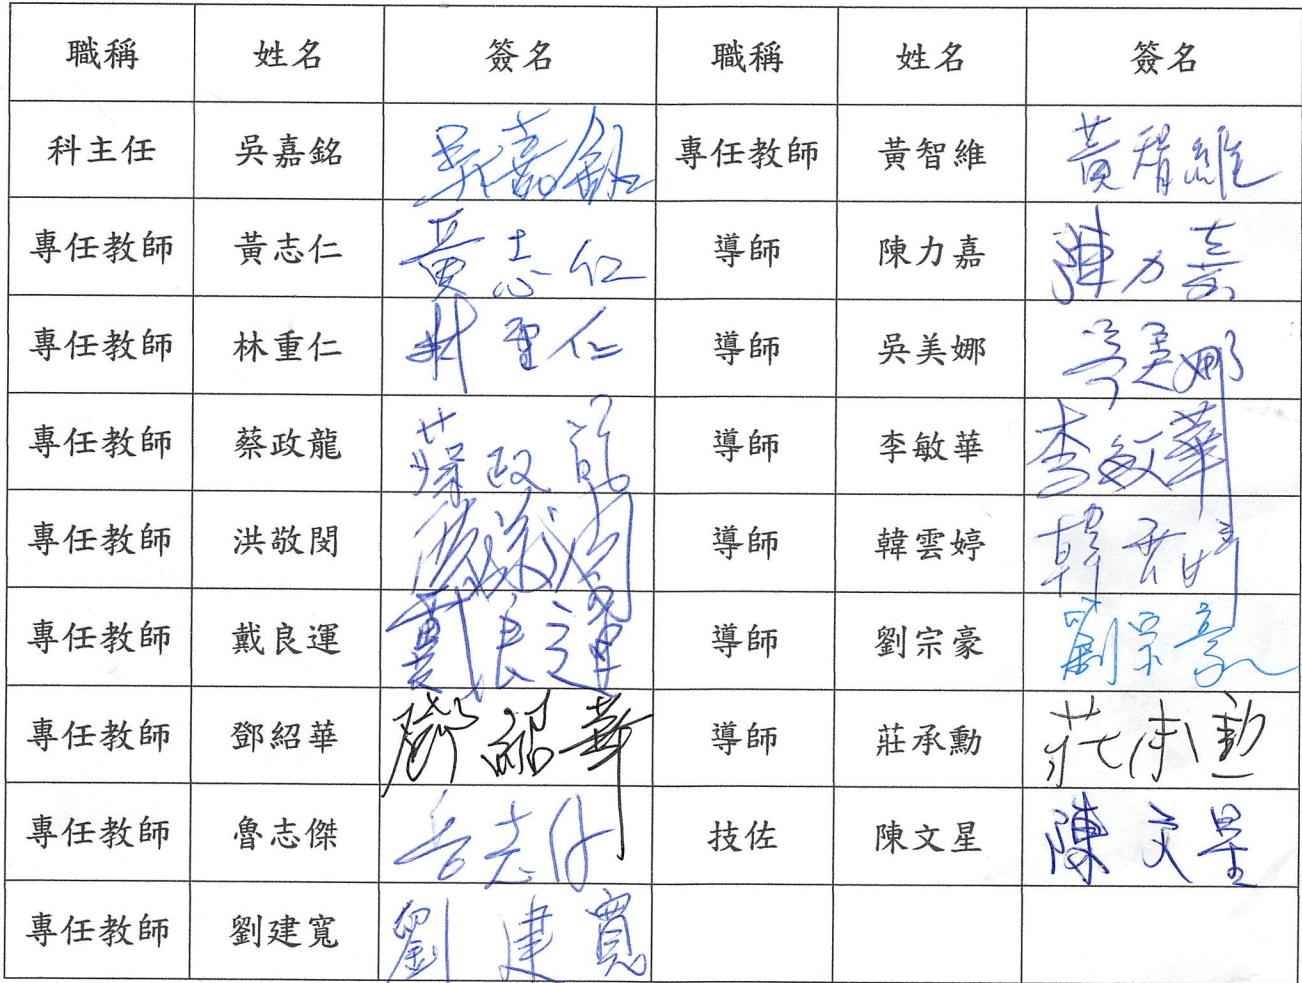 職稱 姓名 簽名 職稱 姓名 簽名
科主任 吳嘉銘 吳嘉銘 專任教師 黃智維 黃智維
專任教師 黃志仁 黃志仁 導師 陳力嘉 陳力嘉
專任教師 林重仁 林重仁 導師 吳美娜 吳美娜
專任教師 蔡政龍 蔡政龍 導師 李敏華 李敏華
專任教師 洪敬閔 洪敬閔 導師 韓雲婷 韓雲婷
專任教師 戴良運 戴良運 導師 劉宗豪 劉宗豪
專任教師 鄧紹華 鄧紹華 導師 莊承勳 莊承勳
專任教師 魯志傑 魯志傑 技佐 陳文星 陳文星
專任教師 劉建寬 劉建寬